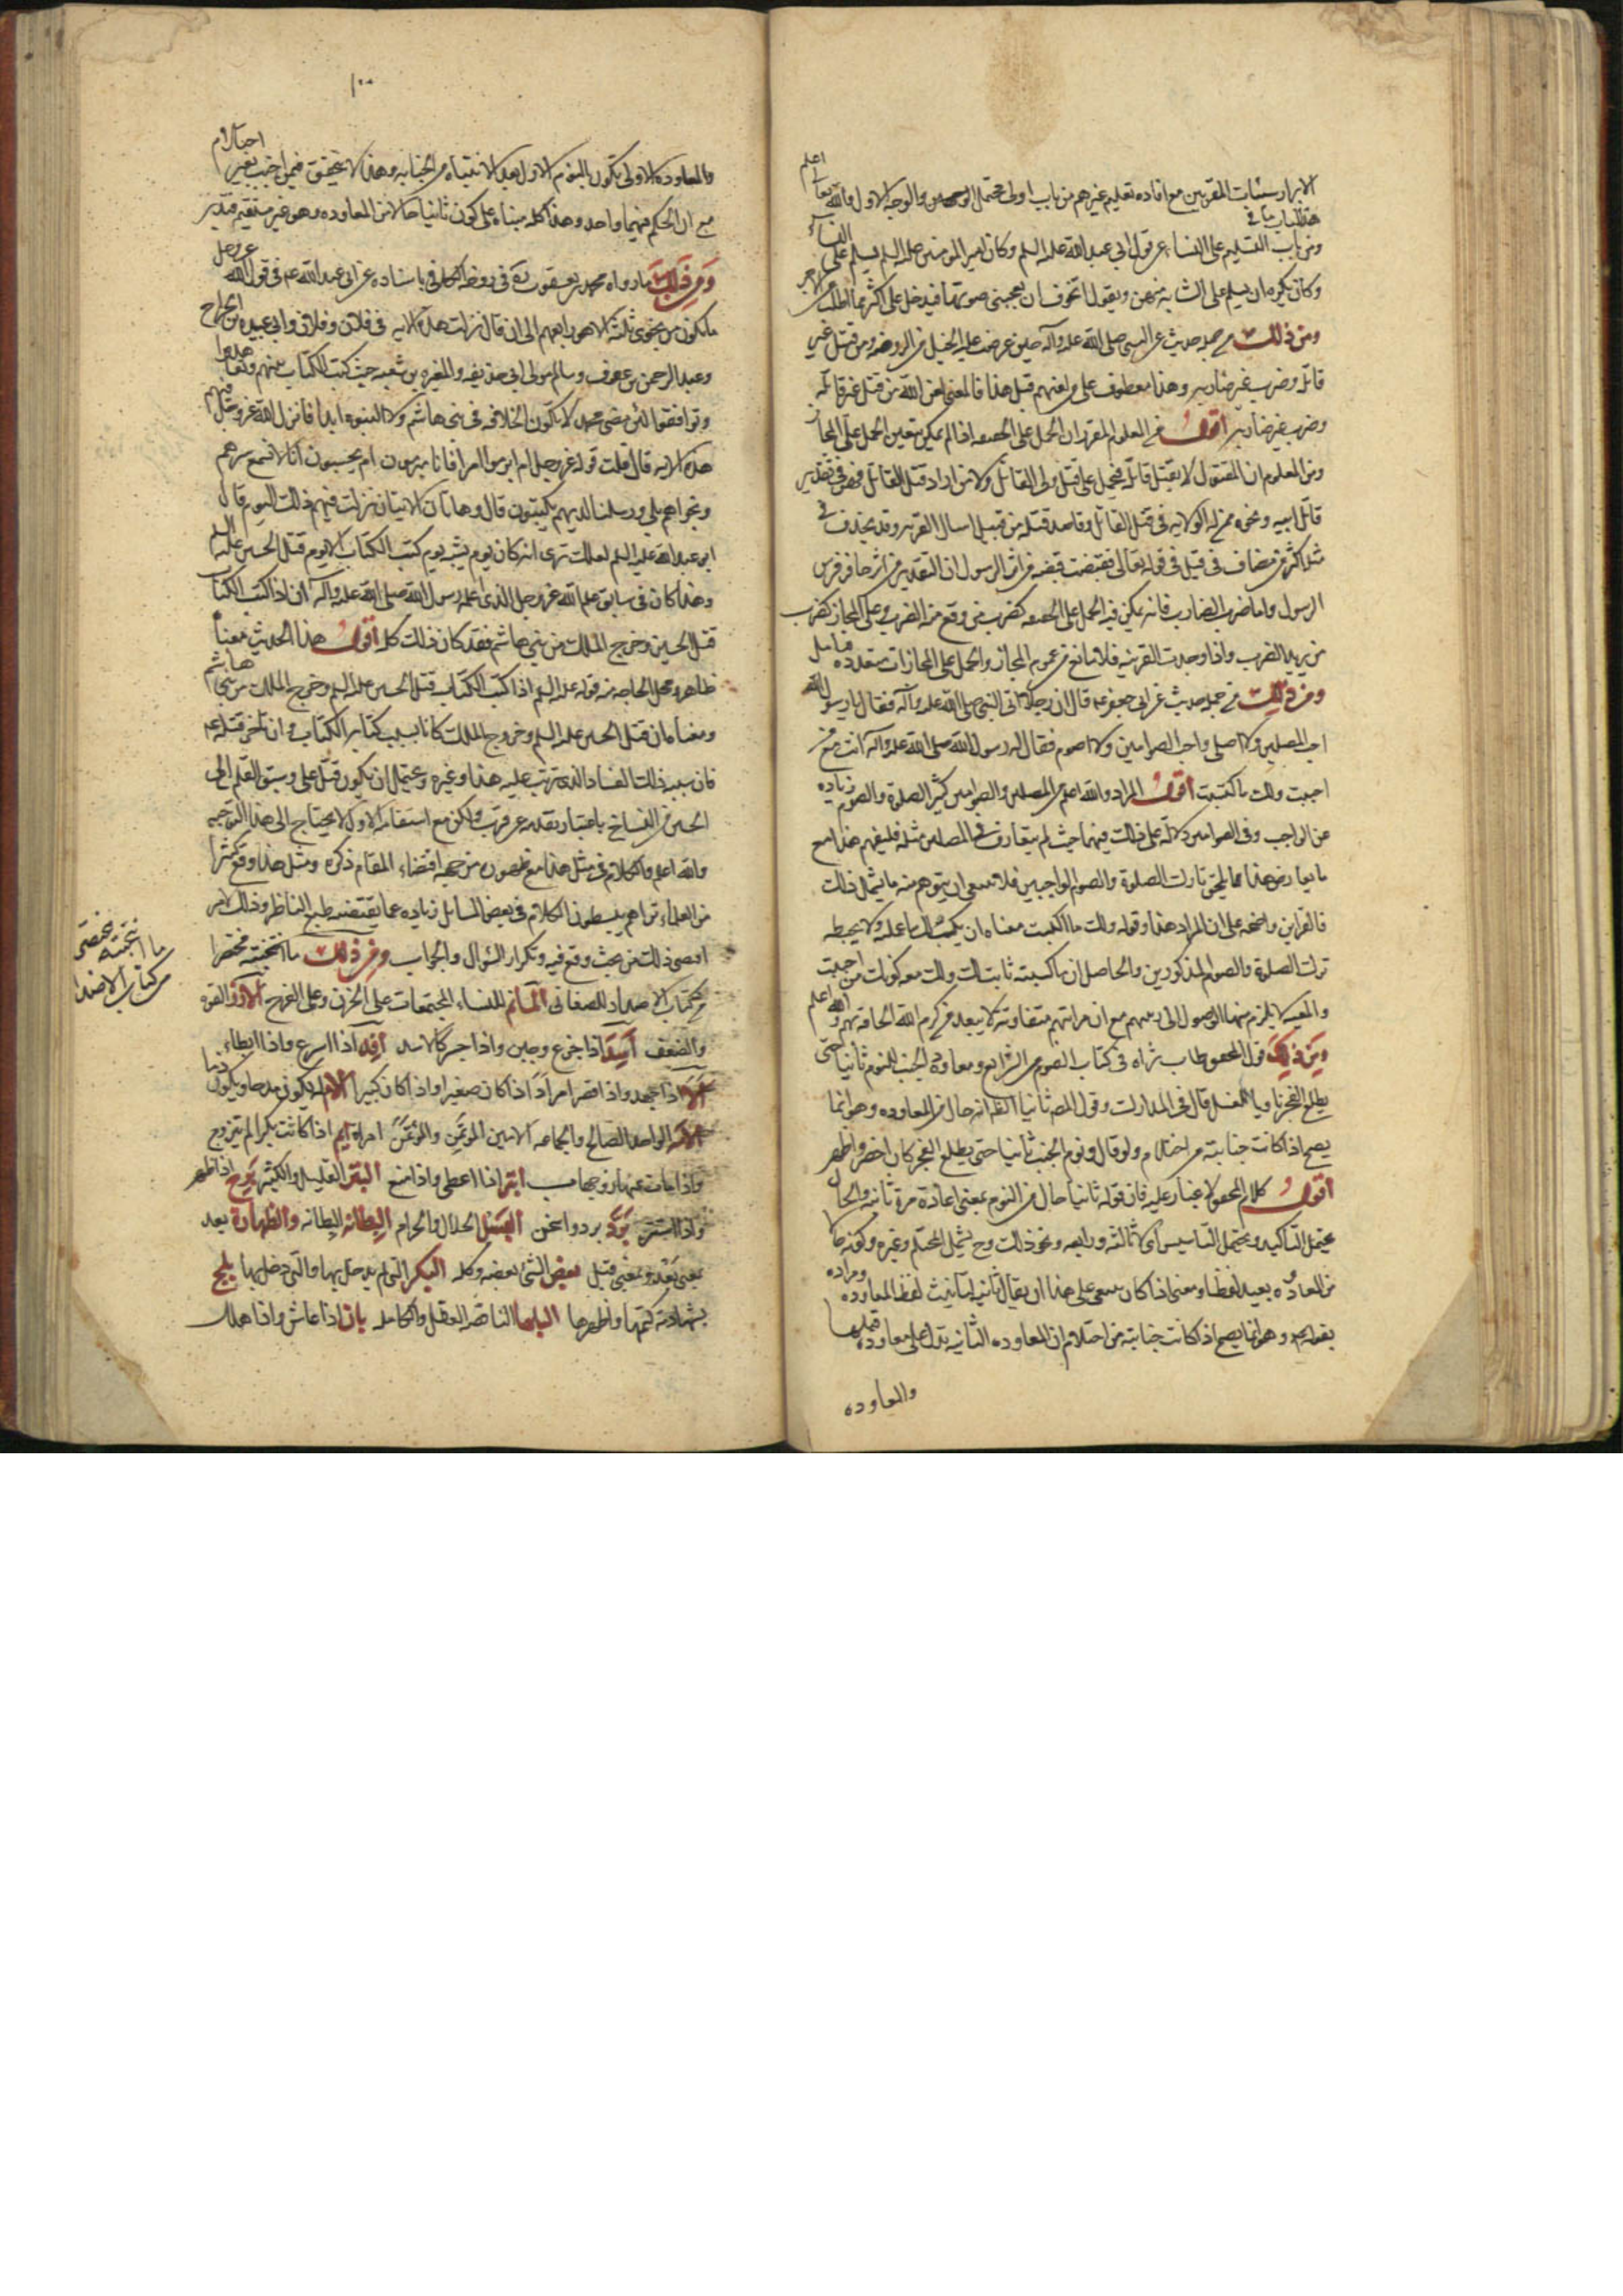 الابرار سيئات المقربين مع افاده تعليم غيرهم من باب اولى محتمل الوجهين والوجه الاول والله تعالى اعلم
ومن باب التسليم على النساء عن قول ابي عبد الله عليه السلم وكان امير المومنين عليه السلم يسلم على النساء
وكان يكره ان يسلم على الشابه منهن ويقول اتخوف ان يعجبني صوتها فيدخل على اكثر مما اطلب من الاجر
ومن ذلك من جمله حديث عن النبي صلى الله عليه وآله حين عرضت عليه الخيل من الروضه ومن قتل غير
قاتله وضرب غير ضاربه وهذا معطوف على من لعنهم قبل هذا فالمعنى لعن الله من قتل غير قاتله
وضرب غير ضاربه اقول من المعلوم المقرر ان الحمل على الحقيقه اذا لم يمكن يتعين الحمل على المجاز
ومن المعلوم ان المقتول لا يقتل قاتله فيحمل على قتل ولي القاتل ولا من اراد قتل القاتل فهو في تقدير
قاتل ابيه ونحوه ممن له الولايه في قتل القاتل وقاصد قتله من قبيل اسال القريه وقد يحذف في
مثله اكثر من مضاف في قيل في قوله تعالى فقبضت قبضه من اثر الرسول ان التقدير من اثر حافر فرس
الرسول واما ضرب الضارب فانه يمكن فيه الحمل على الحقيقه كضرب من وقع منه الضرب وعلى المجاز كضرب
من يريد الضرب واذا وجدت القرينه فلا مانع من عموم المجاز والحمل على المجازات متعدده فتامل
ومن ذلك من جمله حديث عن ابي جعفر عليه قال ان رجلا اتى النبي صلى الله عليه وآله فقال يا رسول الله
احب المصلين ولا اصلي واحب الصوامين ولا اصوم فقال له رسول الله صلى الله عليه وآله انت مع من
احببت ولك ما اكتسبت اقول المراد والله اعلم من المصلين والصوامين كثير الصلوة والصوم زياده
عن الواجب وفي الصوامين دلاله على ذلك فيهما حيث لم يتعارف في المصلين مثله فليفهم هذا مع
ما يعارض هذا مما يلحق تارك الصلوة والصوم الواجبين فلا ينبغي ان يتوهم منه ما يشمل ذلك
فالقراين واضحه على ان المراد هذا وقوله ولك ما اكتسبت معناه ان يكتب لك ما عمله ولا يحبطه
ترك الصلوة والصوم المذكورين والحاصل ان ما كسبته ثابت لك ولك معه كونك من احببت
والمعيه لا يلزم منها الوصول الى رتبتهم مع ان مراتبهم متفاوته لا يبعد من كرم الله الحاقه بهم والله اعلم
ومن ذلك قول المحقق طاب ثراه في كتاب الصوم من الشرايع ومعاودة الجنب للنوم ثانيا حتى
يطلع الفجر ناويا للغسل قال في المدارك وقول المص ثانيا الظ انه حال من المعاوده وهو انما
يصح اذا كانت جنابته من احتلام ولو قال ونوم الجنب ثانيا حتى يطلع الفجر كان اخصر واظهر
اقول كلام المحقق لا غبار عليه فان قوله ثانيا حال من النوم بمعنى اعادة مرة ثانيه والحال
يحتمل التاكيد ويحتمل التاسيس اي لا ثالثه ورابعه ونحو ذلك وح يشمل المحتلم وغيره وكونه حالا
من المعاوده بعيد لفظا ومعنى اذا كان ينبغي على هذا ان يقال ثانيه لتانيث لفظ المعاوده ومراده
بقوله وهو انما يصح اذا كانت جنابته من احتلام ان المعاوده الثانيه تدل على معاوده قبلها
والمعاوده
١٠٠
والمعاوده الاولى تكون بالنوم الاول بعد الانتباه من الجنابه وهذا لا يتحقق فيمن اجنب بغير احتلام
مع ان الحكم فيهما واحد وهذا كله مبناه على كون ثانيا حالا من المعاوده وهو غير مستقيم فتدبر
ومن ذلك ما رواه محمد بن يعقوب في روضه الكافي باسناده عن ابي عبد الله عم في قول الله عز وجل
ما يكون من نجوى ثلثة الا هو رابعهم الى ان قال نزلت هذه الايه في فلان وفلان وابي عبيده بن الجراح
وعبد الرحمن بن عوف وسالم مولى ابي حذيفه والمغيره بن شعبه حيث كتب الكتاب بينهم وتعاهدوا
وتوافقوا لئن مضى محمد لا تكون الخلافه في بني هاشم ولا النبوه ابدا فانزل الله عز وجل فيهم
هذه الايه قال قلت قوله عز وجل ام ابرموا امرا فانا مبرمون ام يحسبون انا لا نسمع سرهم
ونجواهم بلى ورسلنا لديهم يكتبون قال وهاتان الايتان نزلت فيهم ذلك اليوم قال
ابو عبد الله عليه السلم لعلك ترى انه كان يوم يشبه يوم كتب الكتاب الا يوم قتل الحسين عليه السلم
وهذا كان في سابق علم الله عز وجل الذي اعلمه رسول الله صلى الله عليه وآله ان اذا كتب الكتاب
قتل الحسين وخرج الملك من بني هاشم فقد كان ذلك كله اقول هذا الحديث معناه
ظاهر ومحل الحاجه منه قوله عليه السلم اذا كتب الكتاب قتل الحسين عليه السلم وخرج الملك من بني هاشم
ومعناه ان قتل الحسين عليه السلم وخروج الملك كانا بسبب كتابه الكتاب وان تاخر قتله عم
فان سبب ذلك الفساد الذي ترتب عليه هذا وغيره ويحتمل ان يكون قتل على وسبق القلم الى
الحسين من النساخ باعتبار تقدمه عن قرب ولكن مع استقامه الاول لا يحتاج الى هذا التوجيه
والله اعلم والكلام في مثل هذا مع ظهوره من جهه اقتضاء المقام ذكره ومثل هذا وقع كثيرا
من العلماء تراهم يبسطون الكلام في بعض المسائل زياده عما يقتضيه طبع الناظر وذلك لامر
اقتضى ذلك من بحث وقع فيه وتكرار السؤال والجواب ومن ذلك ما انتخبته مختصرا
من كتاب الاضداد للصغاني الماتم للنساء المجتمعات على الحزن وعلى الفرح الازر القوه
والضعف اسد اذا جزع وجبن واذا جسر كالاسد افد اذا اسرع واذا ابطاء
الا اذا جهد واذا قصر امرا اذا كان صغيرا واذا كان كبيرا الامه يكون مدحا ويكون ذما
الامه الواحد الصالح والجماعه الامين المؤتمن والمؤتمن امراة ايم اذا كانت بكرا لم تتزوج
واذا مات عنها زوجها ابتر اذا اعطى واذا منع البثر القليل والكثير برح اذا ظهر
واذا استتر برد برد واسخن البسل الحلال والحرام البطانه البطانه والظهارة بعد
بمعنى بعد وبمعنى قبل بعض الشئ بعضه وكله البكر التي لم يدخل بها والتي دخل بها بلج
بشهادته كتمها واظهرها البلها الناقصة العقل والكامله بان اذا عاش واذا هلك
ما انتخبته مختصرا
من كتاب الاضداد